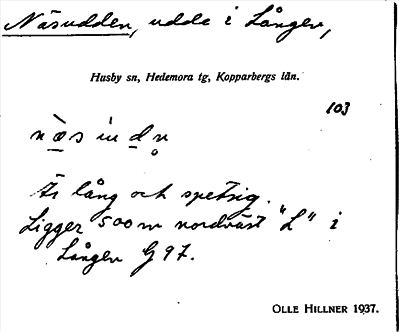 Näsudden, udde i Lången,
Husby sn, Hedemora tg, Kopparbergs län.
103
Är lång och spetsig.
Ligger 500 m nordväst "L" i
Lången G 97.
OLLE HILLNER 1937.